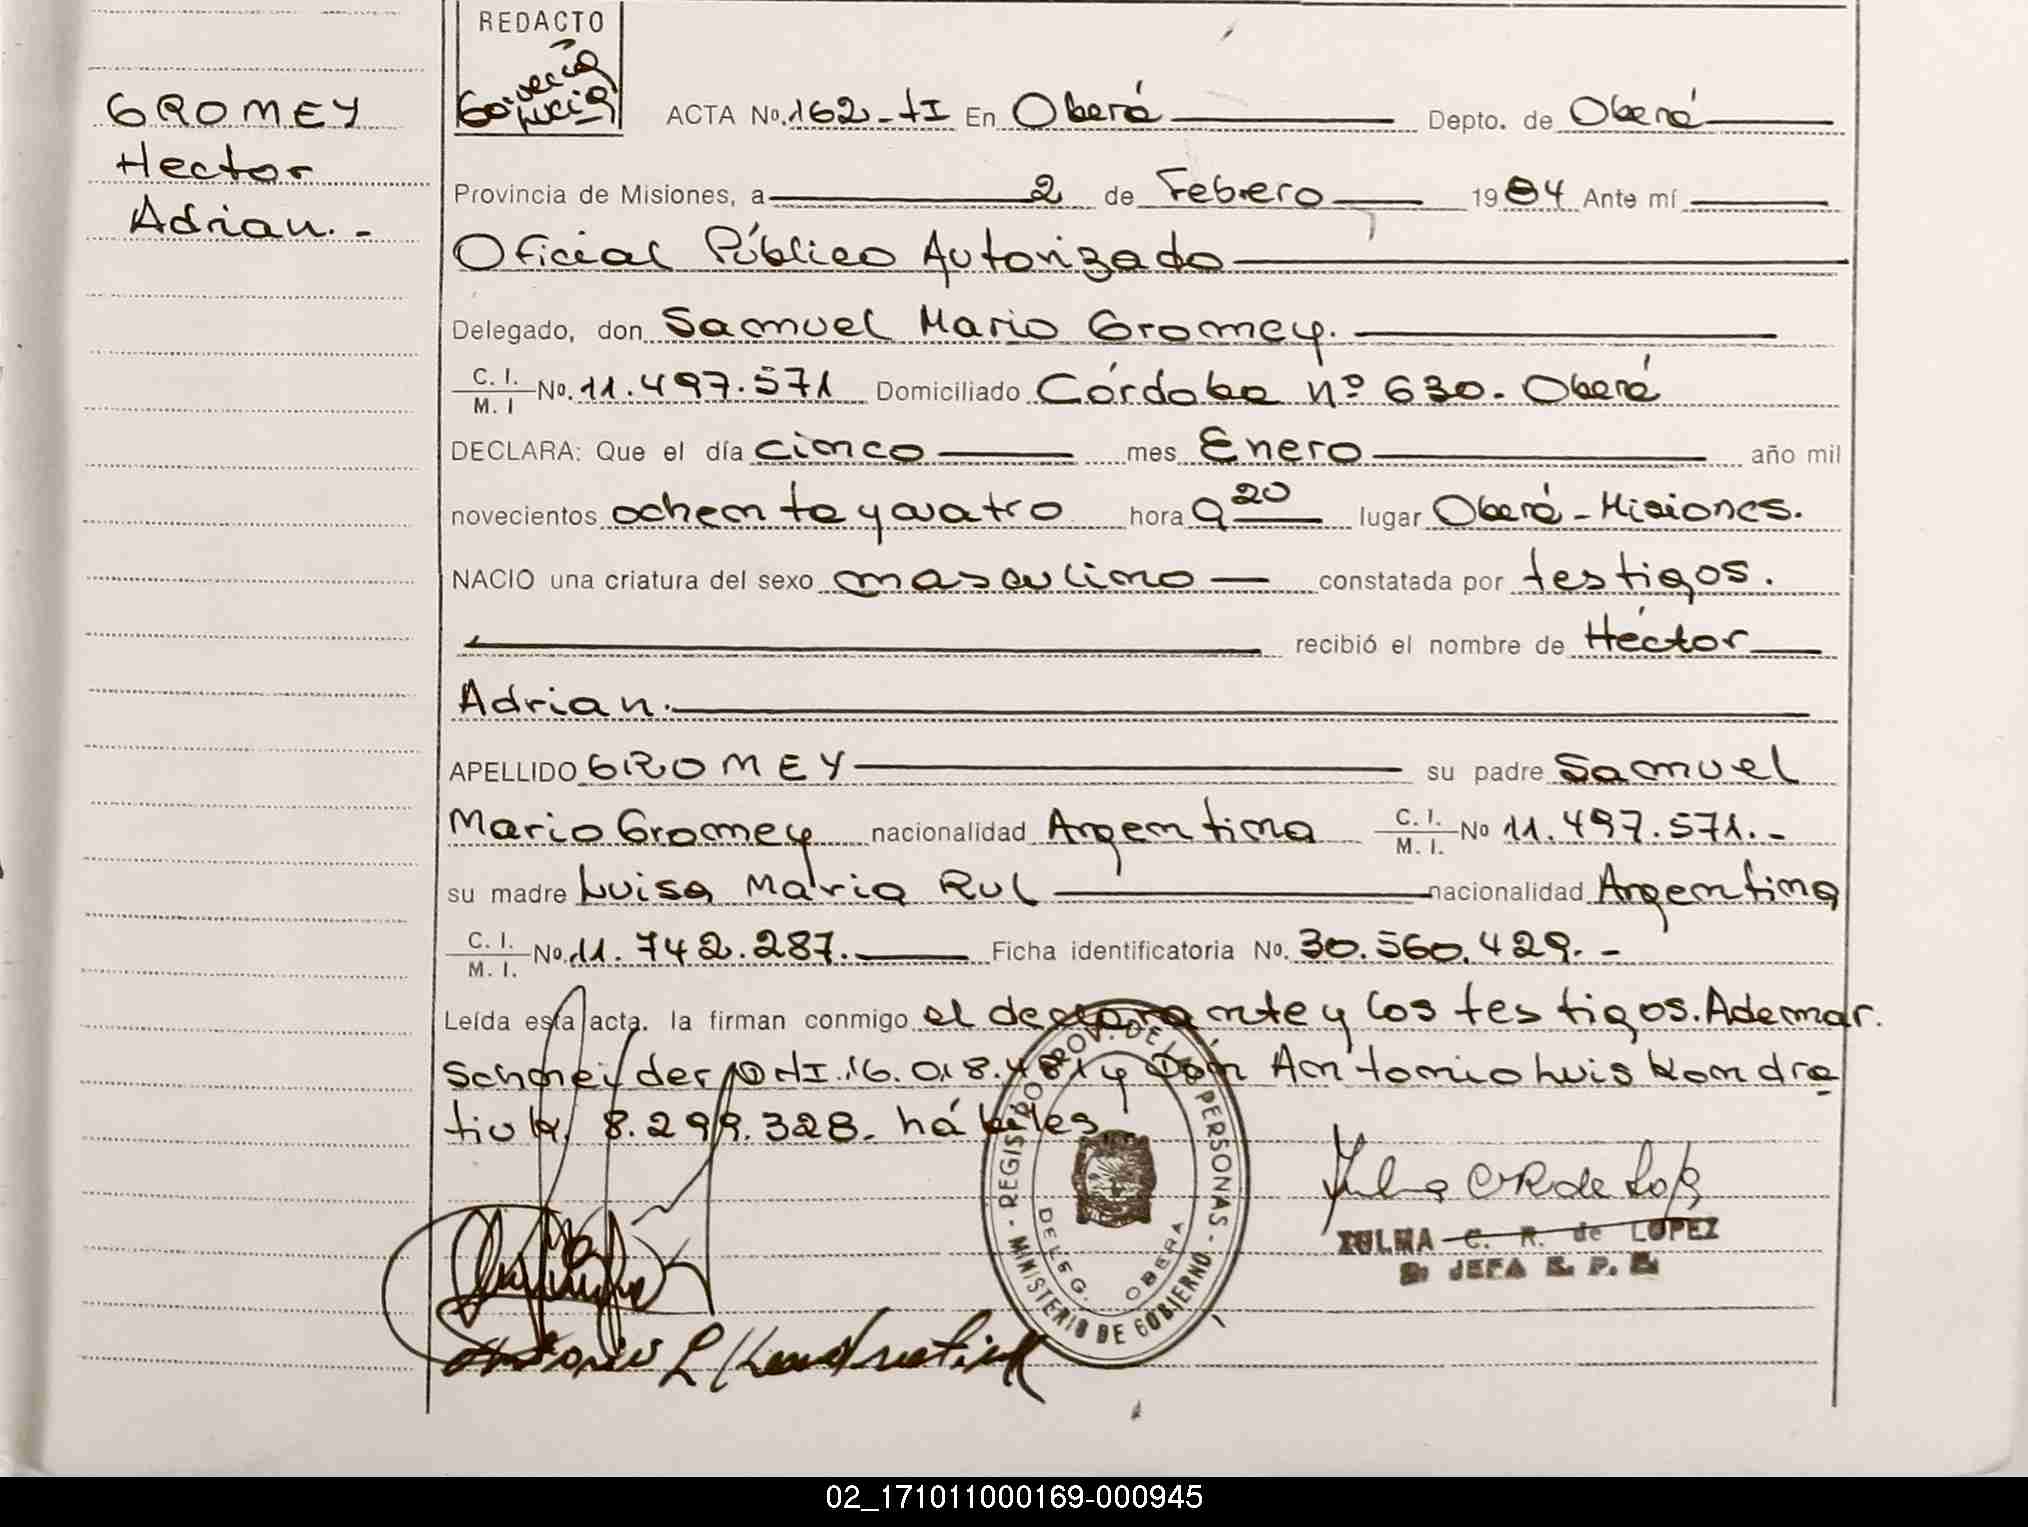 REDACTO
GROMEY
Hector
Adrian.-
ACTA No. 162-tI En Oberá Depto. de Oberá
Provincia de Misiones, a 2 de Febrero 1984 Ante mí
Oficial Público Autorizado
Delegado, don Samuel Mario Gromey.
C. I. M. I No. 11.497.571 Domiciliado Córdoba nº 630. Oberá
DECLARA: Que el día cinco mes Enero año mil
novecientos ochenta y cuatro hora 9 20 lugar Oberá-Misiones.
NACIO una criatura del sexo masculino constatada por testigos.
recibió el nombre de Héctor
Adrian.
APELLIDO GROMEY su padre Samuel
Mario Gromey nacionalidad Argentina C. I. M. I. No 11.497.571.-
su madre Luisa Maria Rul nacionalidad Argentina
C. I. M. I. No. 11.742.287. Ficha identificatoria No. 30.560.429.-
Leída esta acta, la firman conmigo el declarante y los testigos. Ademar.
Schneider DNI.16.018.481 y Don Antonio Luis Kondra
tiuk. 8.299.328. hábiles
REGISTRO PROV. DE LAS PERSONAS - MINISTERIO DE GOBIERNO -
DELEG. OBERA
ZULMA C. R. de LOPEZ
JEFA
Antonio L Kondratiuk
02_171011000169-000945